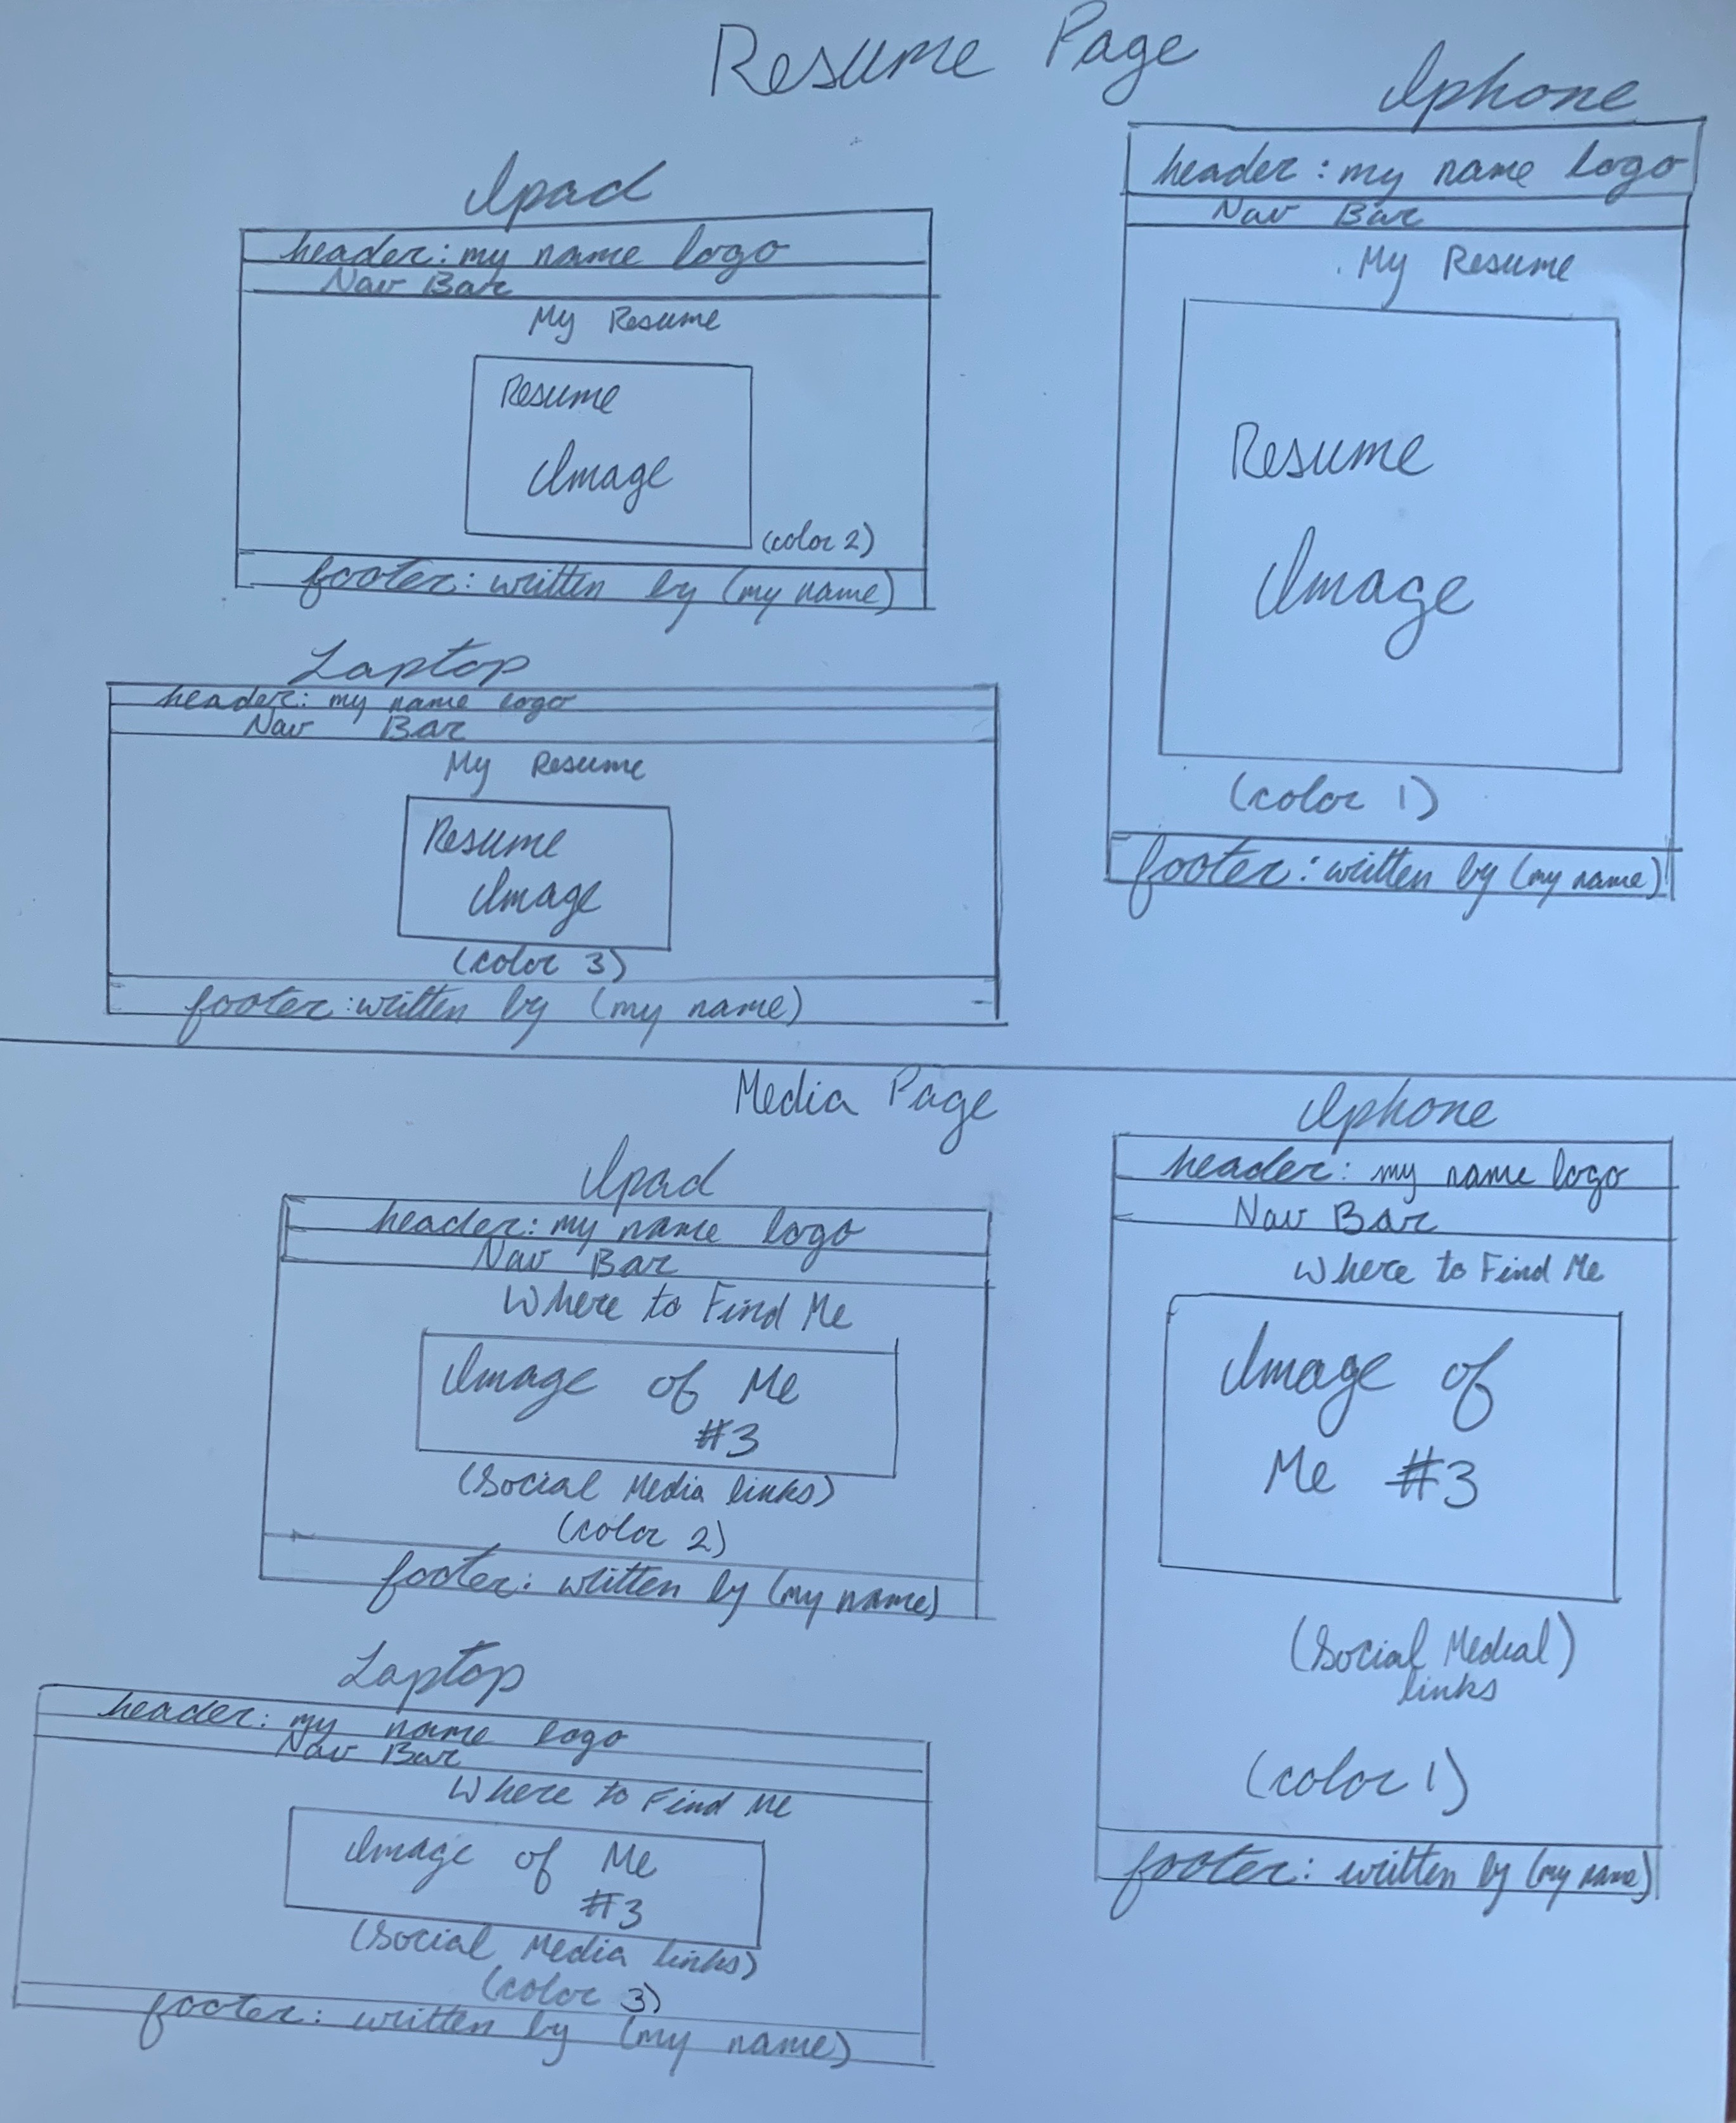 Resume Page
Ipad
header: my name logo
Nav Bar
My Resume
Resume
Image
(color 2)
footer: written by (my name)
Iphone
header: my name logo
Nav Bar
My Resume
Resume
Image
(color 1)
footer: written by (my name)
Laptop
header: my name logo
Nav Bar
My Resume
Resume
Image
(color 3)
footer: written by (my name)
Media Page
Ipad
header: my name logo
Nav Bar
Where to Find Me
Image of Me
#3
(Social Media links)
(color 2)
footer: written by (my name)
Iphone
header: my name logo
Nav Bar
Where to Find Me
Image of
Me #3
(Social Medial)
links
(color 1)
footer: written by (my name)
Laptop
header: my name logo
Nav Bar
Where to Find Me
Image of Me
#3
(Social Media links)
(color 3)
footer: written by (my name)